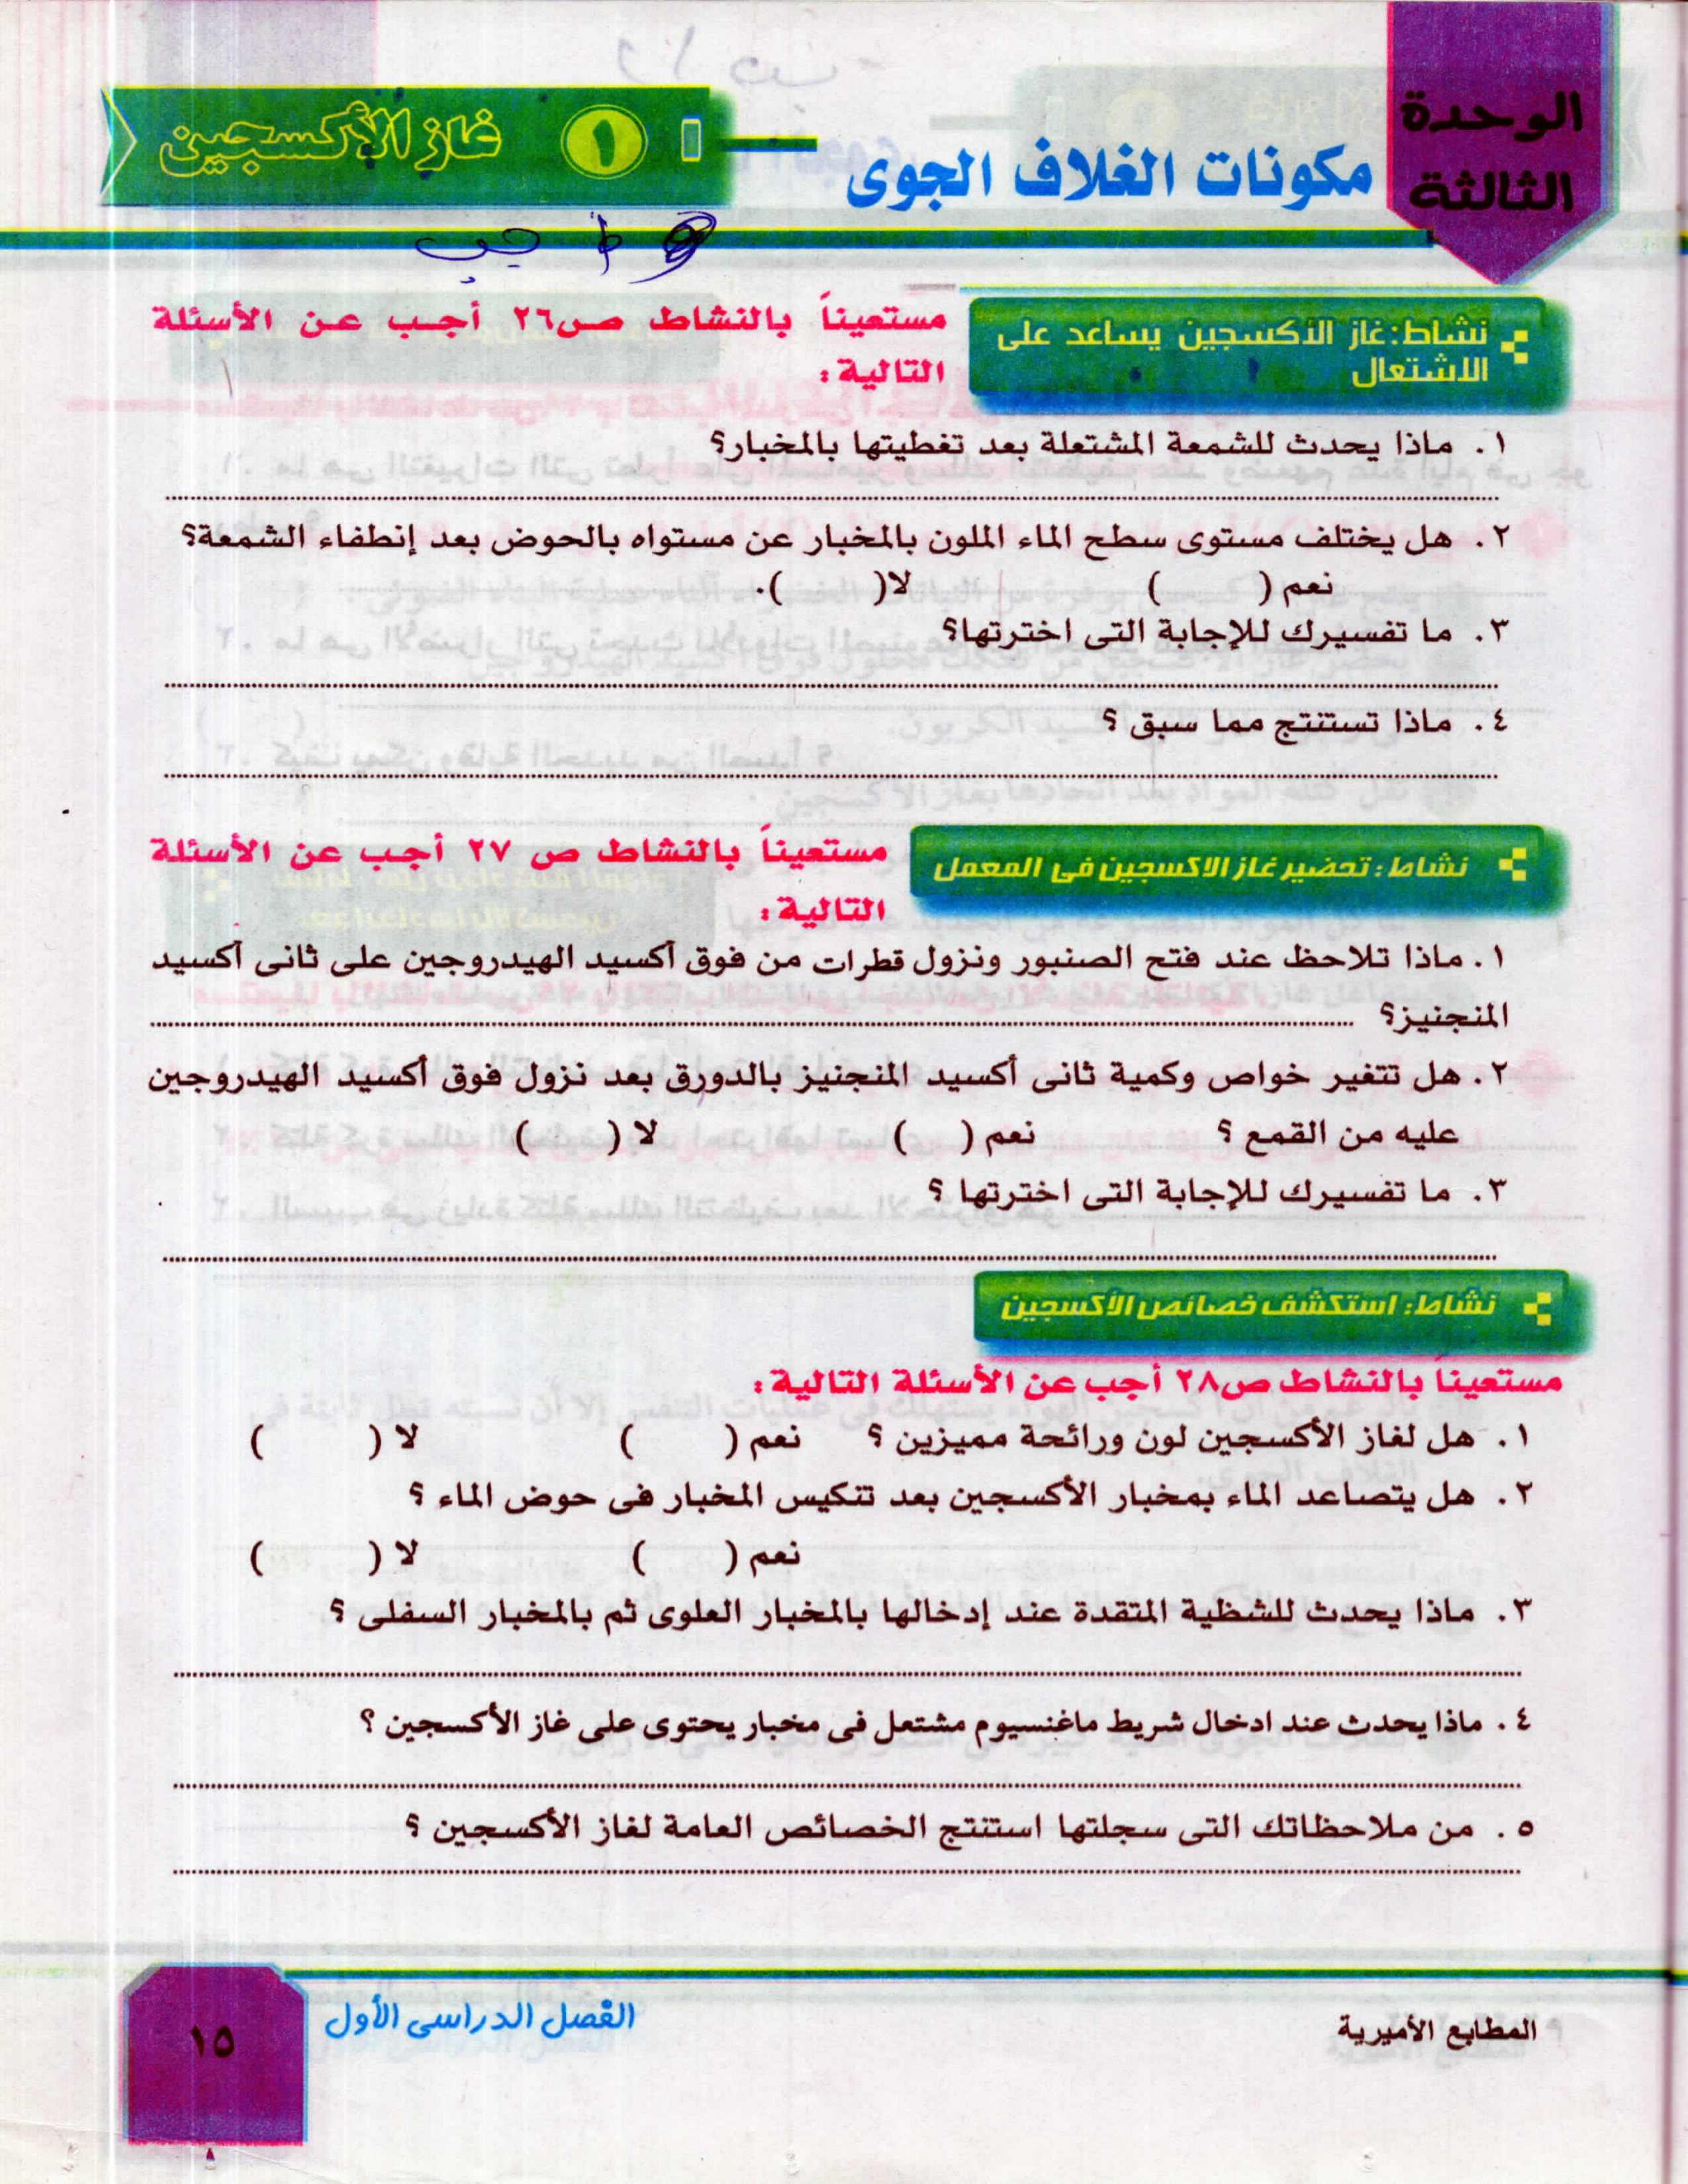 الوحدة
الثالثة
مكونات الغلاف الجوى
١ غاز الأكسجين
واجب
نشاط: غاز الأكسجين يساعد على
الاشتعال
مستعيناً بالنشاط ص٢٦ أجب عن الأسئلة
التالية :
١. ماذا يحدث للشمعة المشتعلة بعد تغطيتها بالمخبار؟
٢. هل يختلف مستوى سطح الماء الملون بالمخبار عن مستواه بالحوض بعد إنطفاء الشمعة؟
نعم ( ) لا( ).
٣. ما تفسيرك للإجابة التى اخترتها؟
٤. ماذا تستنتج مما سبق ؟
نشاط : تحضير غاز الاكسجين فى المعمل
مستعيناً بالنشاط ص ٢٧ أجب عن الأسئلة
التالية :
١. ماذا تلاحظ عند فتح الصنبور ونزول قطرات من فوق أكسيد الهيدروجين على ثانى أكسيد
المنجنيز؟
٢. هل تتغير خواص وكمية ثانى أكسيد المنجنيز بالدورق بعد نزول فوق أكسيد الهيدروجين
عليه من القمع ؟ نعم ( ) لا ( )
٣. ما تفسيرك للإجابة التى اخترتها ؟
نشاط: استكشف خصائص الأكسجين
مستعيناً بالنشاط ص٢٨ أجب عن الأسئلة التالية :
١. هل لغاز الأكسجين لون ورائحة مميزين ؟ نعم ( ) لا ( )
٢. هل يتصاعد الماء بمخبار الأكسجين بعد تنكيس المخبار فى حوض الماء ؟
نعم ( ) لا ( )
٣. ماذا يحدث للشظية المتقدة عند إدخالها بالمخبار العلوى ثم بالمخبار السفلى ؟
٤. ماذا يحدث عند ادخال شريط ماغنسيوم مشتعل فى مخبار يحتوى على غاز الأكسجين ؟
٥. من ملاحظاتك التى سجلتها استنتج الخصائص العامة لغاز الأكسجين ؟
المطابع الأميرية
الفصل الدراسى الأول
١٥